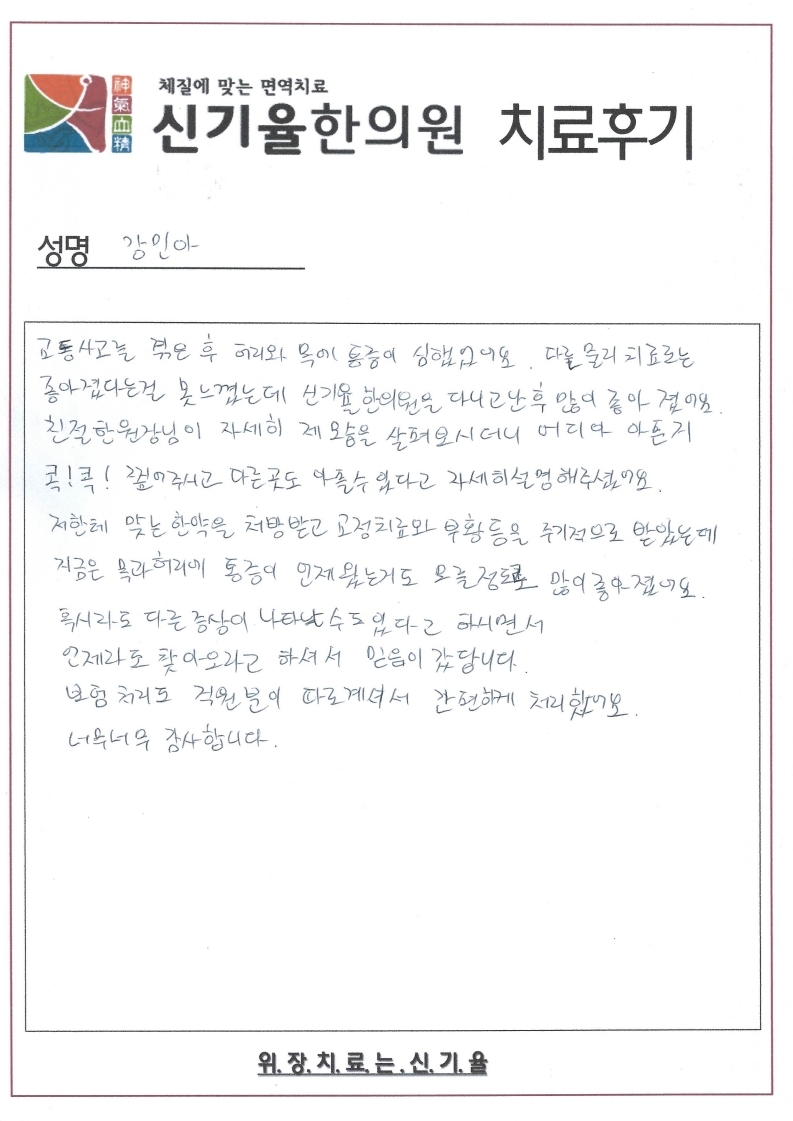 神氣血精
체질에 맞는 면역치료
신기율한의원 치료후기
성명 강인아
교통사고를 겪은 후 허리와 목에 통증이 심했었어요. 다른 물리치료로는
좋아졌다는걸 못느꼈는데 신기율한의원을 다니고난 후 많이 좋아 졌어요.
친절한원장님이 자세히 제 몸을 살펴보시더니 어디가 아픈지
콕!콕! 짚어주시고 다른곳도 아플수 있다고 자세히설명해주셨어요.
저한테 맞는한약을 처방받고 교정치료와 부황등을 주기적으로 받았는데
지금은 목과허리에 통증이 언제 왔는거도 모를정도로 많이좋아졌어요.
혹시라도 다른증상이 나타날 수도 있다고 하시면서
언제라도 찾아오라고 하셔서 믿음이 갔답니다.
보험처리도 직원분이 따로계셔서 간편하게 처리했어요.
너무너무 감사합니다.
위.장.치.료.는.신.기.율